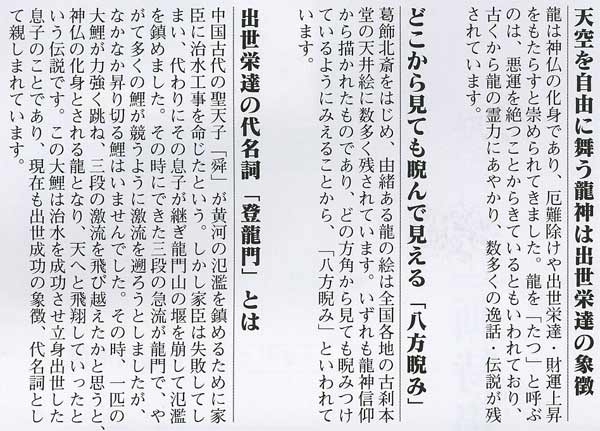 天空を自由に舞う龍神は出世栄達の象徴
龍は神仏の化身であり、厄難除けや出世栄達・財運上昇
をもたらすと崇められてきました。龍を「たつ」と呼ぶ
のは、悪運を絶つことからきているともいわれており、
古くから龍の霊力にあやかり、数多くの逸話・伝説が残
されています。
どこから見ても睨んで見える「八方睨み」
葛飾北斎をはじめ、由緒ある龍の絵は全国各地の古刹本
堂の天井絵に数多く残されています。いずれも龍神信仰
から描かれたものであり、どの方角から見ても睨みつけ
ているようにみえることから、「八方睨み」といわれて
います。
出世栄達の代名詞「登龍門」とは
中国古代の聖天子「舜」が黄河の氾濫を鎮めるために家
臣に治水工事を命じたという。しかし家臣は失敗してし
まい、代わりにその息子が継ぎ龍門山の堰を崩して氾濫
を鎮めました。その時にできた三段の急流が龍門で、や
がて多くの鯉が競うように激流を遡ろうとしましたが、
なかなか昇り切る鯉はいませんでした。その時、一匹の
大鯉が力強く跳ね、三段の激流を飛び越えたかと思うと、
神仏の化身とされる龍となり、天へと飛翔していったと
いう伝説です。この大鯉は治水を成功させ立身出世した
息子のことであり、現在も出世成功の象徴、代名詞とし
て親しまれています。